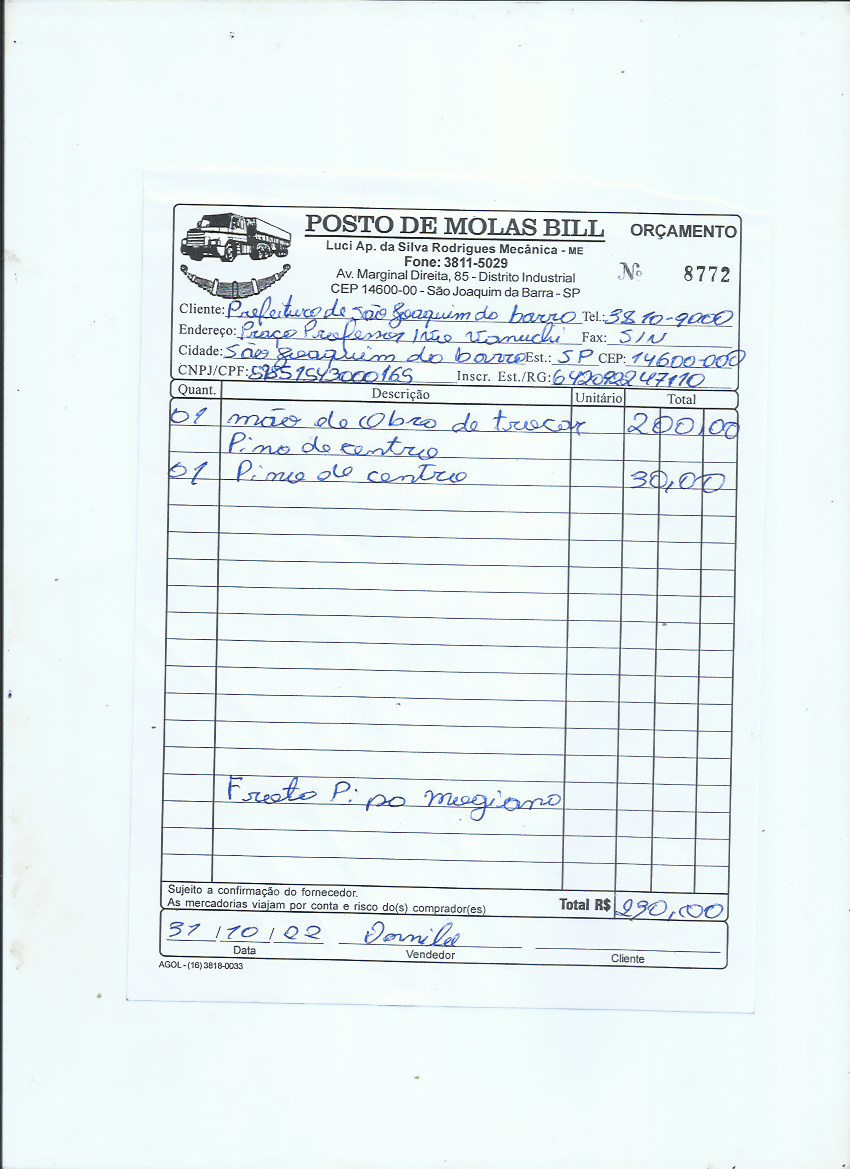 POSTO DE MOLAS BILL ORÇAMENTO
Luci Ap. da Silva Rodrigues Mecânica - ME
Fone: 3811-5029
Av. Marginal Direita, 85 - Distrito Industrial
CEP 14600-00 - São Joaquim da Barra - SP
Nº 8772
Cliente: Prefeitura de São Joaquim da barra Tel.: 3810-9000
Endereço: Praça Professor Ivo Vanuchi Fax: S/N
Cidade: São Joaquim da barra Est.: SP CEP: 14600-000
CNPJ/CPF: Inscr. Est./RG:
Quant. Descrição Unitário Total
01 mão de Obra de trocar 200,00
Pino de centro
01 Pino de centro 30,00
Sujeito a confirmação do fornecedor.
As mercadorias viajam por conta e risco do(s) comprador(es)
Total R$ 230,00
31/10/22 Danilo
Data Vendedor Cliente
AGOL - (16) 3818-0033